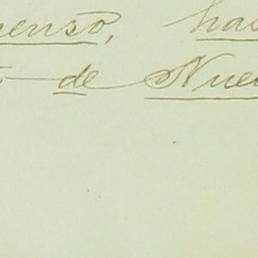 enso, has
de Nue